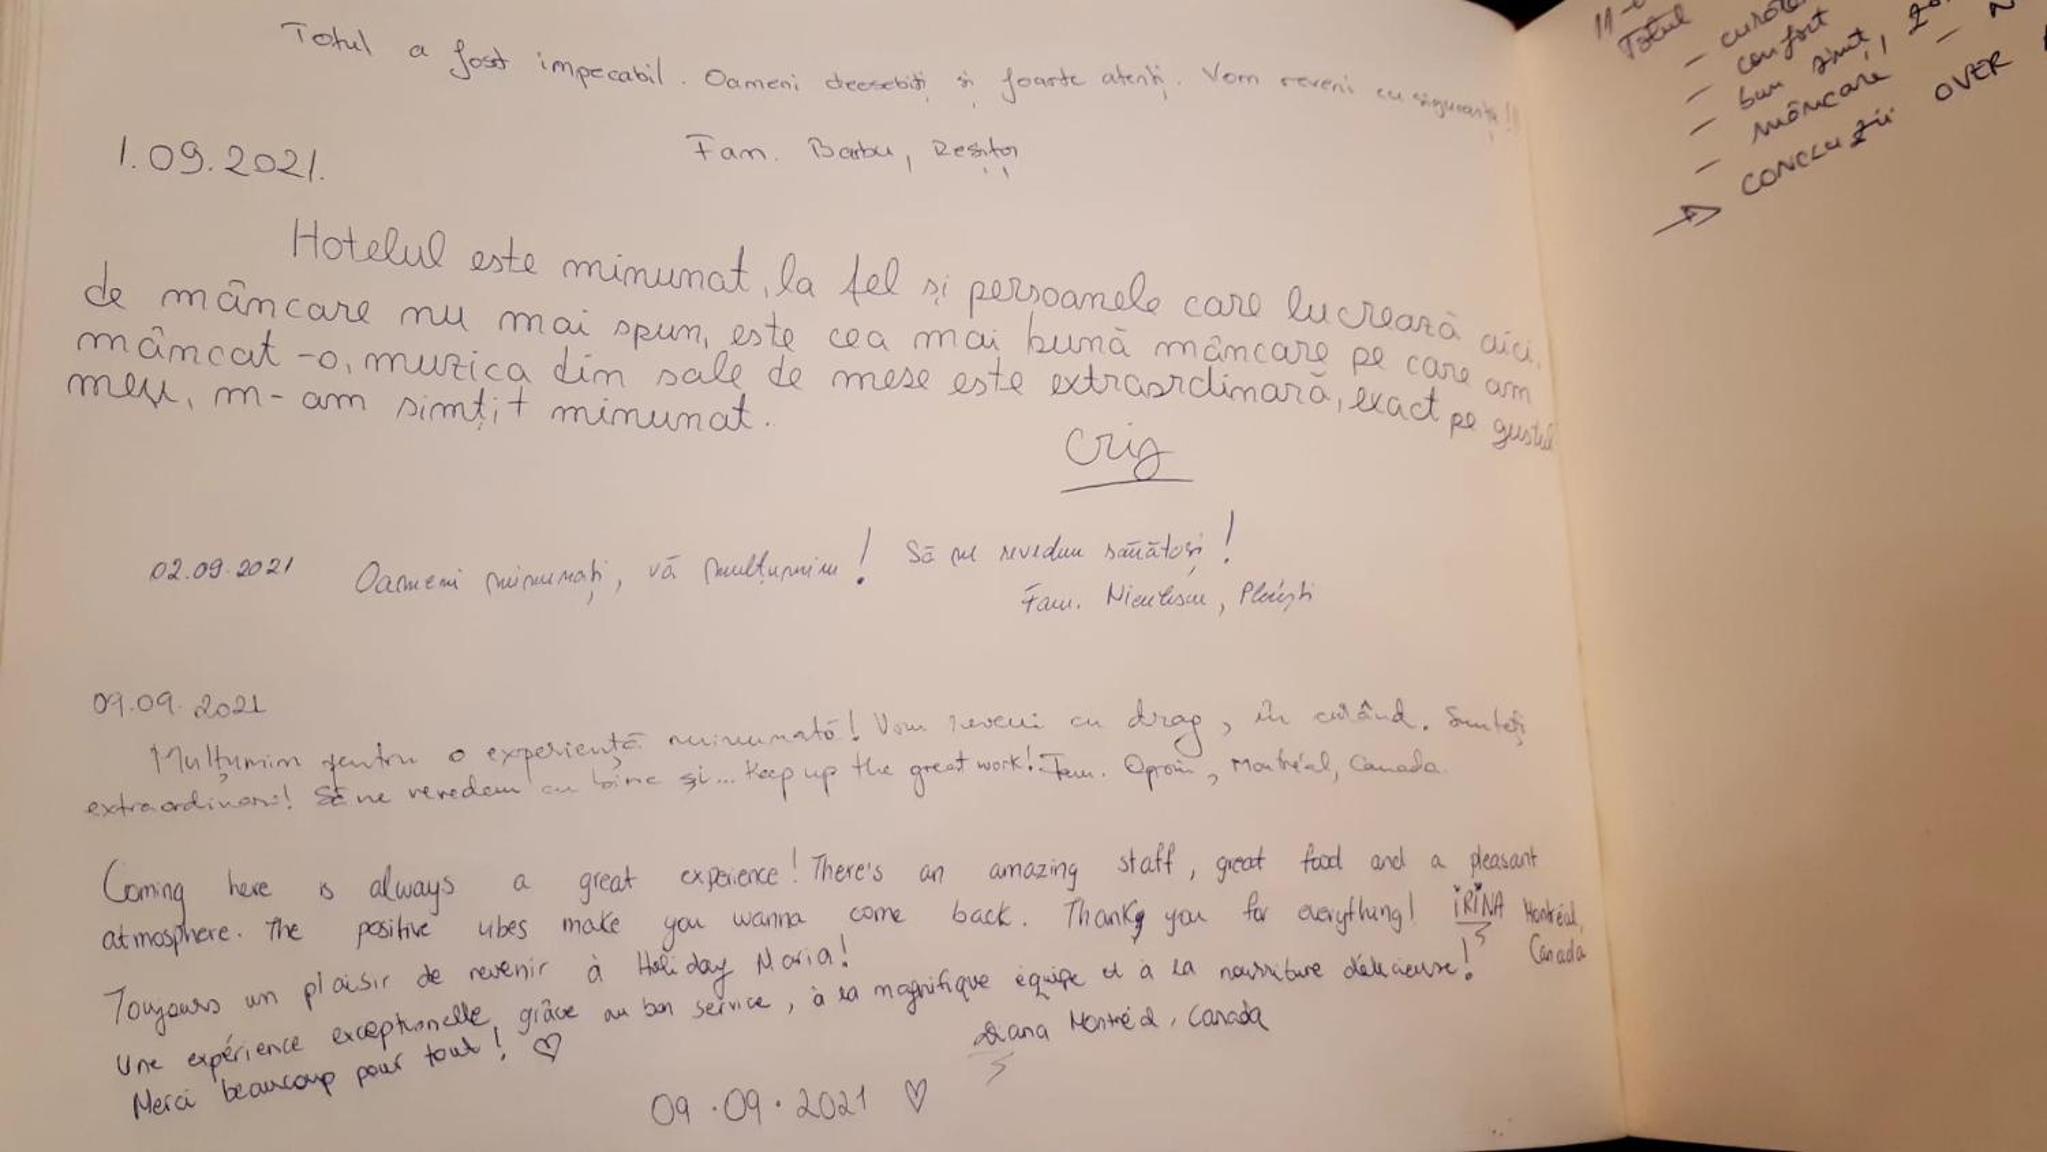 Totul a fost impecabil. Oameni deosebiți și foarte atenți. Vom reveni cu siguranța!!
Fam. Barbu,
1.09.2021.
Hotelul este minunat, la fel și persoanele care lucrează aici,
de mâncare nu mai spun, este cea mai bună mâncare pe care am
mâncat-o, muzica din sale de mese este extraordinară, exact pe gustul
meu, m-am simțit minunat.
Cris
02.09.2021 Oameni minunați, vă mulțumim! Să ne revedem sănătoși!
Fam. Niculescu, Ploiești
09.09.2021
Mulțumim pentru o experiență minunată! Vom reveni cu drag, în curând. Sunteți
extraordinari! Să ne revedem cu bine și... Keep up the great work! Fam. Oproiu, Montréal, Canada.
Coming here is always a great experience! There's an amazing staff, great food and a pleasant
atmosphere. The positive vibes make you wanna come back. Thank you for everything! IRINA Montréal,
Canada
Toujours un plaisir de revenir à Holiday Maria!
Une expérience exceptionelle, grâce au bon service, à la magnifique équipe et à la nourriture délicieuse!
Merci beaucoup pour tout! ♡
Diana Montréal, Canada
09.09.2021 ♡
Totul
- confort
- bun simt,
- mâncare
→ CONCLUZII OVER